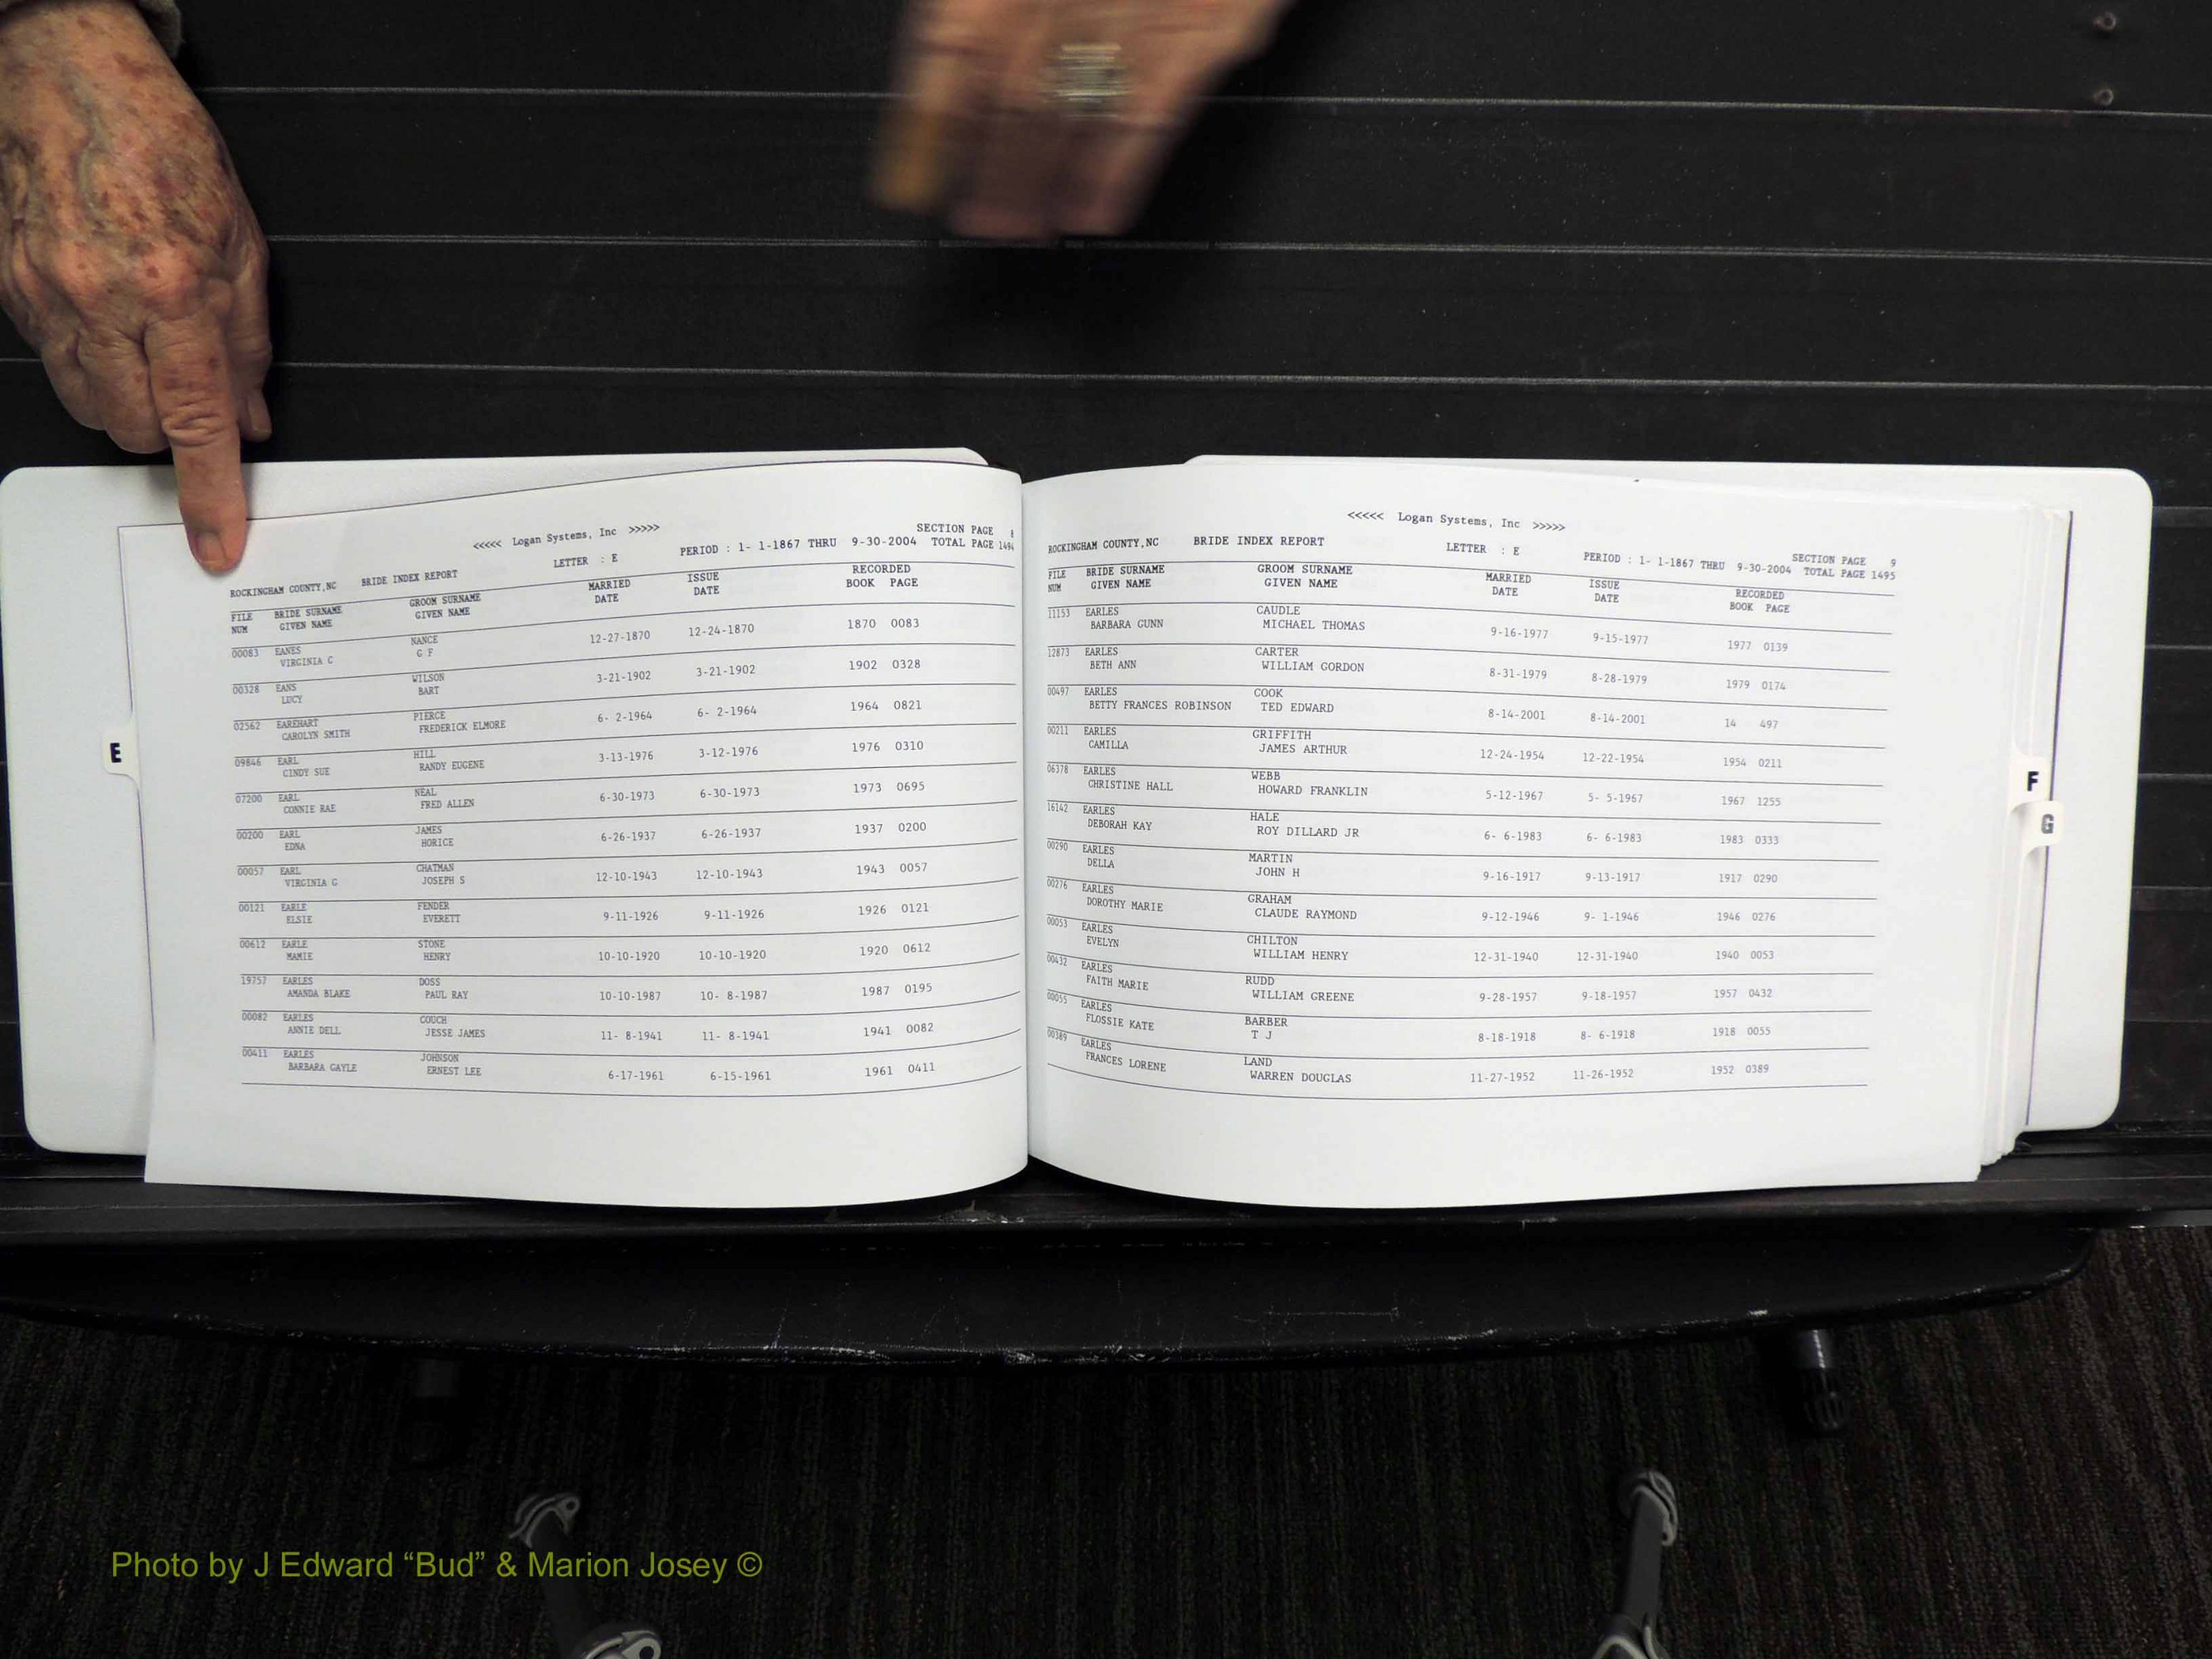 <<<<< Logan Systems, Inc >>>>>
SECTION PAGE 8
ROCKINGHAM COUNTY,NC BRIDE INDEX REPORT LETTER : E PERIOD : 1- 1-1867 THRU 9-30-2004 TOTAL PAGE 1494
FILE BRIDE SURNAME GROOM SURNAME MARRIED ISSUE RECORDED
NUM GIVEN NAME GIVEN NAME DATE DATE BOOK PAGE
00083 EANES NANCE 12-27-1870 12-24-1870 1870 0083
VIRGINIA C G F
00328 EANS WILSON 3-21-1902 3-21-1902 1902 0328
LUCY BART
02562 EAREHART PIERCE 6- 2-1964 6- 2-1964 1964 0821
CAROLYN SMITH FREDERICK ELMORE
09846 EARL HILL 3-13-1976 3-12-1976 1976 0310
CINDY SUE RANDY EUGENE
07200 EARL NEAL 6-30-1973 6-30-1973 1973 0695
CONNIE RAE FRED ALLEN
00200 EARL JAMES 6-26-1937 6-26-1937 1937 0200
EDNA HORICE
00057 EARL CHATMAN 12-10-1943 12-10-1943 1943 0057
VIRGINIA G JOSEPH S
00121 EARLE FENDER 9-11-1926 9-11-1926 1926 0121
ELSIE EVERETT
00612 EARLE STONE 10-10-1920 10-10-1920 1920 0612
MAMIE HENRY
19757 EARLES DOSS 10-10-1987 10- 8-1987 1987 0195
AMANDA BLAKE PAUL RAY
00082 EARLES COUCH 11- 8-1941 11- 8-1941 1941 0082
ANNIE DELL JESSE JAMES
00411 EARLES JOHNSON 6-17-1961 6-15-1961 1961 0411
BARBARA GAYLE ERNEST LEE
E
<<<<< Logan Systems, Inc >>>>>
SECTION PAGE 9
ROCKINGHAM COUNTY,NC BRIDE INDEX REPORT LETTER : E PERIOD : 1- 1-1867 THRU 9-30-2004 TOTAL PAGE 1495
FILE BRIDE SURNAME GROOM SURNAME MARRIED ISSUE RECORDED
NUM GIVEN NAME GIVEN NAME DATE DATE BOOK PAGE
11153 EARLES CAUDLE 9-16-1977 9-15-1977 1977 0139
BARBARA GUNN MICHAEL THOMAS
12873 EARLES CARTER 8-31-1979 8-28-1979 1979 0174
BETH ANN WILLIAM GORDON
00497 EARLES COOK 8-14-2001 8-14-2001 14 497
BETTY FRANCES ROBINSON TED EDWARD
00211 EARLES GRIFFITH 12-24-1954 12-22-1954 1954 0211
CAMILLA JAMES ARTHUR
06378 EARLES WEBB 5-12-1967 5- 5-1967 1967 1255
CHRISTINE HALL HOWARD FRANKLIN
16142 EARLES HALE 6- 6-1983 6- 6-1983 1983 0333
DEBORAH KAY ROY DILLARD JR
00290 EARLES MARTIN 9-16-1917 9-13-1917 1917 0290
DELLA JOHN H
00276 EARLES GRAHAM 9-12-1946 9- 1-1946 1946 0276
DOROTHY MARIE CLAUDE RAYMOND
00053 EARLES CHILTON 12-31-1940 12-31-1940 1940 0053
EVELYN WILLIAM HENRY
00432 EARLES RUDD 9-28-1957 9-18-1957 1957 0432
FAITH MARIE WILLIAM GREENE
00055 EARLES BARBER 8-18-1918 8- 6-1918 1918 0055
FLOSSIE KATE T J
00389 EARLES LAND 11-27-1952 11-26-1952 1952 0389
FRANCES LORENE WARREN DOUGLAS
F
G
Photo by J Edward “Bud” & Marion Josey ©